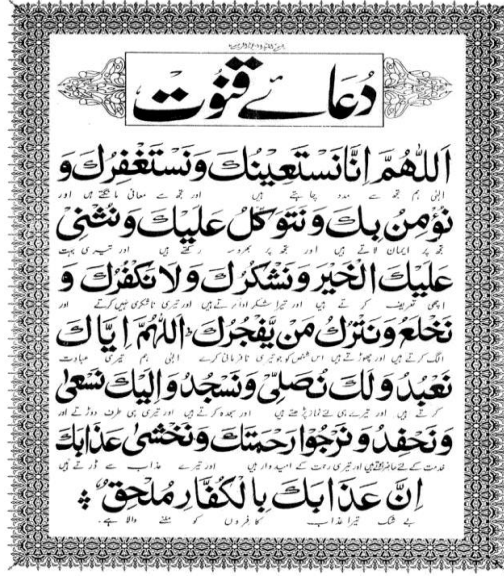 دُعائے قنُوت
اَللّٰهُمَّ اِنَّا نَسْتَعِيْنُكَ وَنَسْتَغْفِرُكَ وَ
الہٰی ہم تجھ سے مدد چاہتے ہیں اور تجھ سے معافی مانگتے ہیں اور
نُؤْمِنُ بِكَ وَنَتَوَكَّلُ عَلَيْكَ وَنُثْنِيْ
تجھ پر ایمان لاتے ہیں اور تجھ پر بھروسہ رکھتے ہیں اور تیری بہت
عَلَيْكَ الْخَيْرَ وَنَشْكُرُكَ وَلَا نَكْفُرُكَ وَ
اچھی تعریف کرتے ہیں اور تیرا شکر ادا کرتے ہیں اور تیری ناشکری نہیں کرتے اور
نَخْلَعُ وَنَتْرُكُ مَنْ يَّفْجُرُكَ اَللّٰهُمَّ اِيَّاكَ
الگ کرتے ہیں اور چھوڑتے ہیں اس شخص کو جو تیری نافرمانی کرے الہٰی ہم تیری عبادت
نَعْبُدُ وَلَكَ نُصَلِّيْ وَنَسْجُدُ وَاِلَيْكَ نَسْعٰى
کرتے ہیں اور تیرے ہی لئے نماز پڑھتے ہیں اور سجدہ کرتے ہیں اور تیری ہی طرف دوڑتے اور
وَنَحْفِدُ وَنَرْجُوْا رَحْمَتَكَ وَنَخْشٰى عَذَابَكَ
خدمت کے لئے حاضر ہوتے ہیں اور تیری رحمت کے امیدوار ہیں اور تیرے عذاب سے ڈرتے ہیں
اِنَّ عَذَابَكَ بِالْكُفَّارِ مُلْحِقٌ
بے شک تیرا عذاب کافروں کو ملنے والا ہے۔